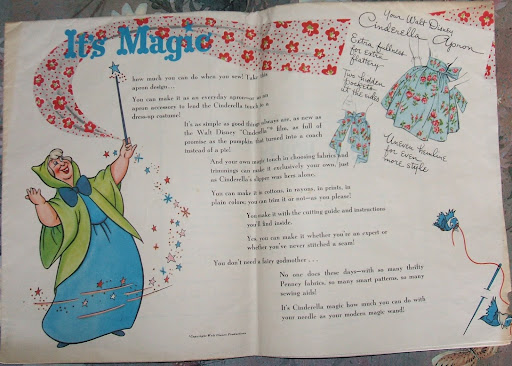 It's Magic
how much you can do when you sew! Take this
apron design...
You can make it as an everyday apron or an
apron accessory to lend the Cinderella touch to a
dress-up costume!
It's as simple as good things always are, as new as
the Walt Disney "Cinderella"* film, as full of
promise as the pumpkin that turned into a coach
instead of a pie!
And your own magic touch in choosing fabrics and
trimmings can make it exclusively your own, just
as Cinderella's slipper was hers alone.
You can make it in cottons, in rayons, in prints, in
plain colors; you can trim it or not—as you please!
You make it with the cutting guide and instructions
you'll find inside.
Yes, you can make it whether you're an expert or
whether you've never stitched a seam!
You don't need a fairy godmother . . .
No one does these days—with so many thrifty
Penney fabrics, so many smart patterns, so many
sewing aids!
It's Cinderella magic how much you can do with
your needle as your modern magic wand!
*Copyright Walt Disney Productions
Your Walt Disney
Cinderella Apron
Extra fullness
for extra
flattery
Two hidden
pockets
at the sides
Uneven hemline
for even
more style